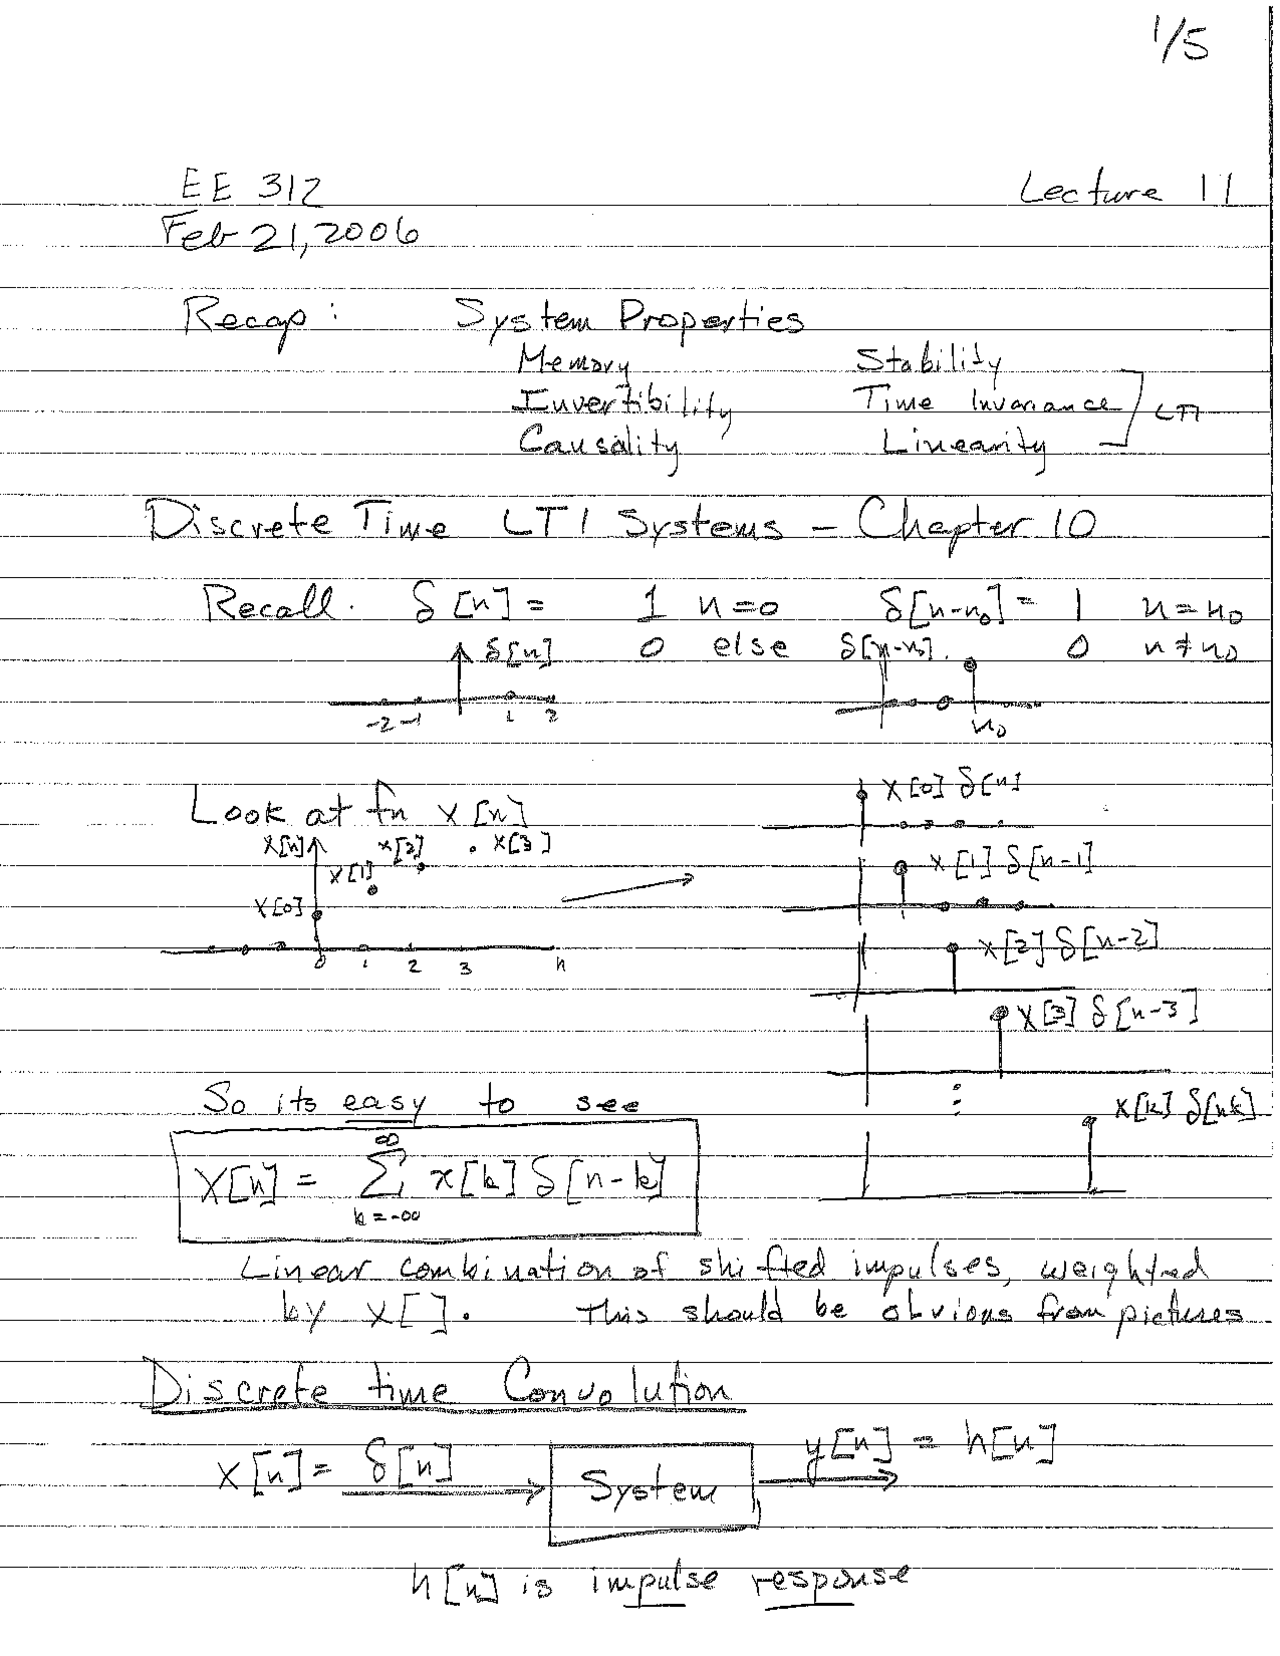 1/5
EE 312 Lecture 11
Feb 21, 2006
Recap: System Properties
Memory Stability
Invertibility Time Invariance
Causality Linearity
LTI
Discrete Time LTI Systems - Chapter 10
Recall. δ[n] = 1 n=0 δ[n-n₀] = 1 n=n₀
0 else 0 n≠n₀
δ[n] δ[n-n₀].
-2 -1 1 2 n₀
Look at fn x[n]
x[n] x[2] x[3]
x[1]
x[0]
0 1 2 3 n
x[0] δ[n]
x[1] δ[n-1]
x[2] δ[n-2]
x[3] δ[n-3]
⋮
x[k] δ[n-k]
So its easy to see
x[n] = ∞ Σ k=-∞ x[k] δ[n-k]
Linear combination of shifted impulses, weighted
by x[]. This should be obvious from pictures
Discrete time Convolution
x[n] = δ[n] System y[n] = h[n]
h[n] is impulse response